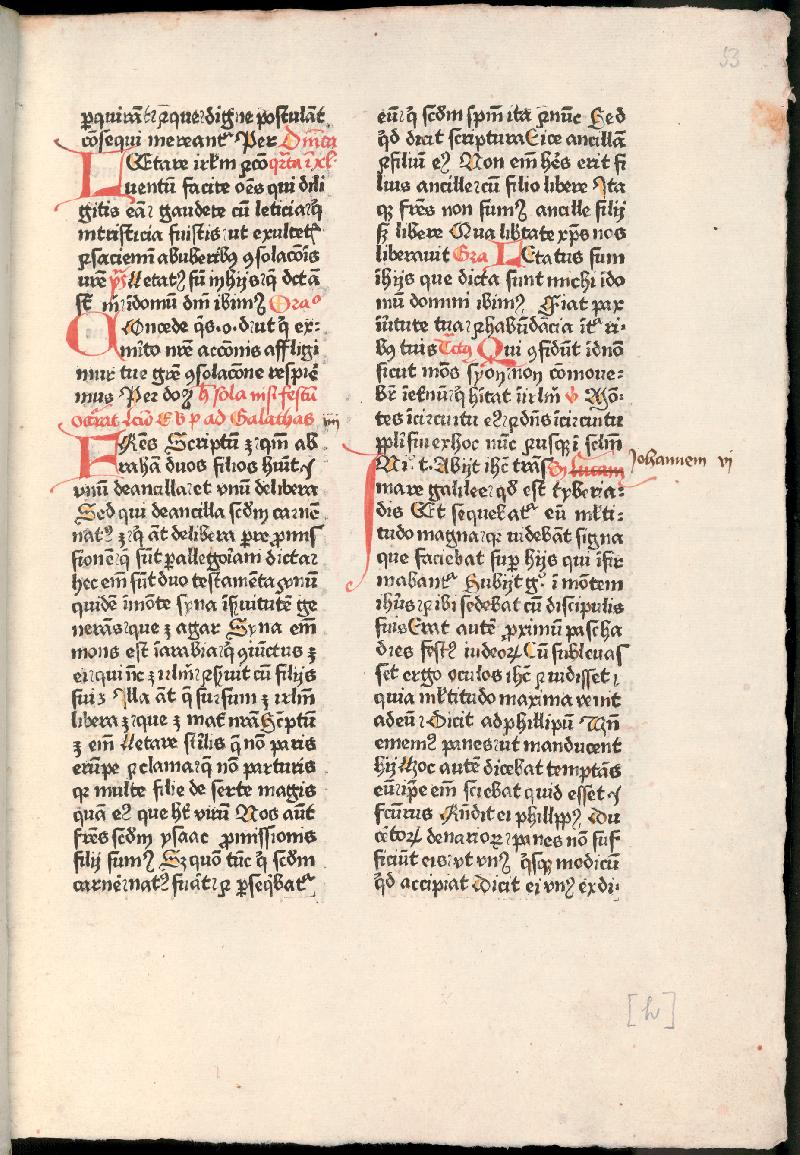 53
ꝑquirāt et que digne postulāt
cōsequi mereant᷑ Per Dn̄ica
LEtare irl̄m et cō q̈rta ī xl᷑
uentū facite oēs qui dili
gitis eā et gaudete cū leticia q̇
in tristicia fuistis ut exultet᷑
et saciem̄ ab uberibꝰ ꝯsolac̄ois
ure᷑ p̄s Letatꝰ sū in hijs q̄ dc̄ta
st̄ m᷑ ī domū dm̄ ibimꝰ Orac̄o
COncede q̄s . o . d ut q̇ ex=
m̄ito nr̄e acc̄onis affligi
mur tue gr̄e ꝯsolac̄one respire
mus Per do
Galathas iiij
FRēs Scriptū ꝫ qm̄ ab
rahā duos filios hūit
vnū de ancilla et vnū de libera
Sed qui de ancilla scd̄m carnē
natꝰ ꝫ q̇ āt de libera per ꝓmis
sionē q̄ sūt p allegoriam dicta
hec em̄ sūt duo testamenta vnū
quidē ī mōte syna ī ẜuitutē ge
nerās que ꝫ agar Syna em̄
mons est ī arabia q̇ ꝯiūctus ꝫ
ei qui nc̄ ꝫ irl̄m et ẜuit cū filijs
suis Illa āt q̄ sursum ꝫ irl̄m
libera ꝫ que ꝫ mat᷑ nr̄a Sc̄ptū
ꝫ em̄ Letare st̓ilis q̄ nō paris
erūpe et clama q̄ nō parturis
qr multe filie deserte magis
quā eiꝰ que hꝫ virū Nos aūt
fr̄es scd̄m ysaac ꝓmissionis
filij sumꝰ Sꝫ quō tūc q̇ scd̄m
carnē natꝰ fu̓at et ꝑseq̄bat᷑
eū q̇ scd̄m spm̄ ita et nūc Sed
q̇d dicit scriptura Eice ancillā
et filiū eiꝰ Non em̄ hēs erit fi
lius ancille cū filio libere Ita
qꝫ fr̄es non sumꝰ ancille filij
sꝫ libere Qua lib̓tate xp̄s nos
liberauit Gra LEtatus sum
ī hijs que dicta sunt michi ī do
mū domini ibimꝰ Fiat pax
ī ūtute tua et habūdācia ī t᷑ri
bꝫ tuis Tctꝰ Qui ꝯfidūt ī dn̄o
sicut mōs syon non cōmoue=
b᷑r ī et᷑nū q̇ hitat ī irl̄m v̓ Mō=
tes ī circuitu eiꝰ et dn̄s ī circuitu
ppl̄i sui ex hoc nūc et usqꝫ ī sclm̄
IN i. t. Abijt ihc̄ trās Lucam Johannem vj
mare galilee qd̓ est tyberia=
dis Et sequebat᷑ eū ml̄ti=
tudo magna qr uidebāt signa
que faciebat sup̄ hijs qui ī fir
mabant᷑ Subijt gͦ ī mōtem
ihūs et ibi sedebat cū discipulis
suis Erat autē ꝓximū pascha
dies festꝰ iudeoꝝ Cū subleuas
set ergo oculos ihc̄ et uidisset
quia ml̄titudo maxima venit
ad eū Dicit ad phillipū Vn̄
ememꝰ panes ut manducent
hij Hoc autē dicebat temptās
eū ip̄e em̄ sciebat quid esset
fc̄urus Rn̄dit ei philippꝰ Du
cētoꝝ denarioꝝ panes nō suf
ficiūt eis vt vnꝰ q̇sqꝫ modicū
q̇d accipiat Dicit ei vnꝰ ex di=
[h]